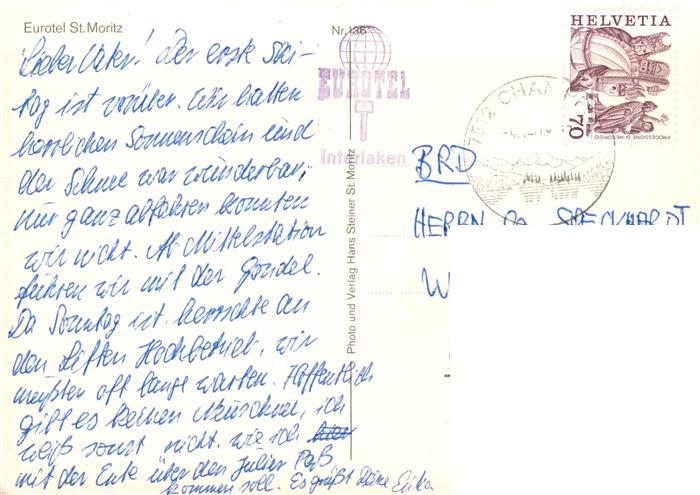 Eurotel St. Moritz
Nr. 136
Lieber Vater! Der erste Ski-
tag ist vorüber. Wir hatten
herrlichen Sonnenschein und
der Schnee war wunderbar,
nur ganz abfahren konnten
wir nicht. Ab Mittelstation
fuhren wir mit der Gondel.
Da Sonntag ist, herrschte an
den Liften Hochbetrieb, wir
mußten oft lange warten. Hoffentlich
gibt es keinen Neuschnee, ich
weiß sonst nicht, wie ich hier
mit der Ente über den Julier Paß
kommen soll. Es grüßt Deine Erika
Photo und Verlag Hans Steiner St. Moritz
EUROTEL
Interlaken
7512 CHAM
HELVETIA
70
PROCESSIONE DI MENDRISIO
BRD
HERRN DR. SPECKHARDT
W